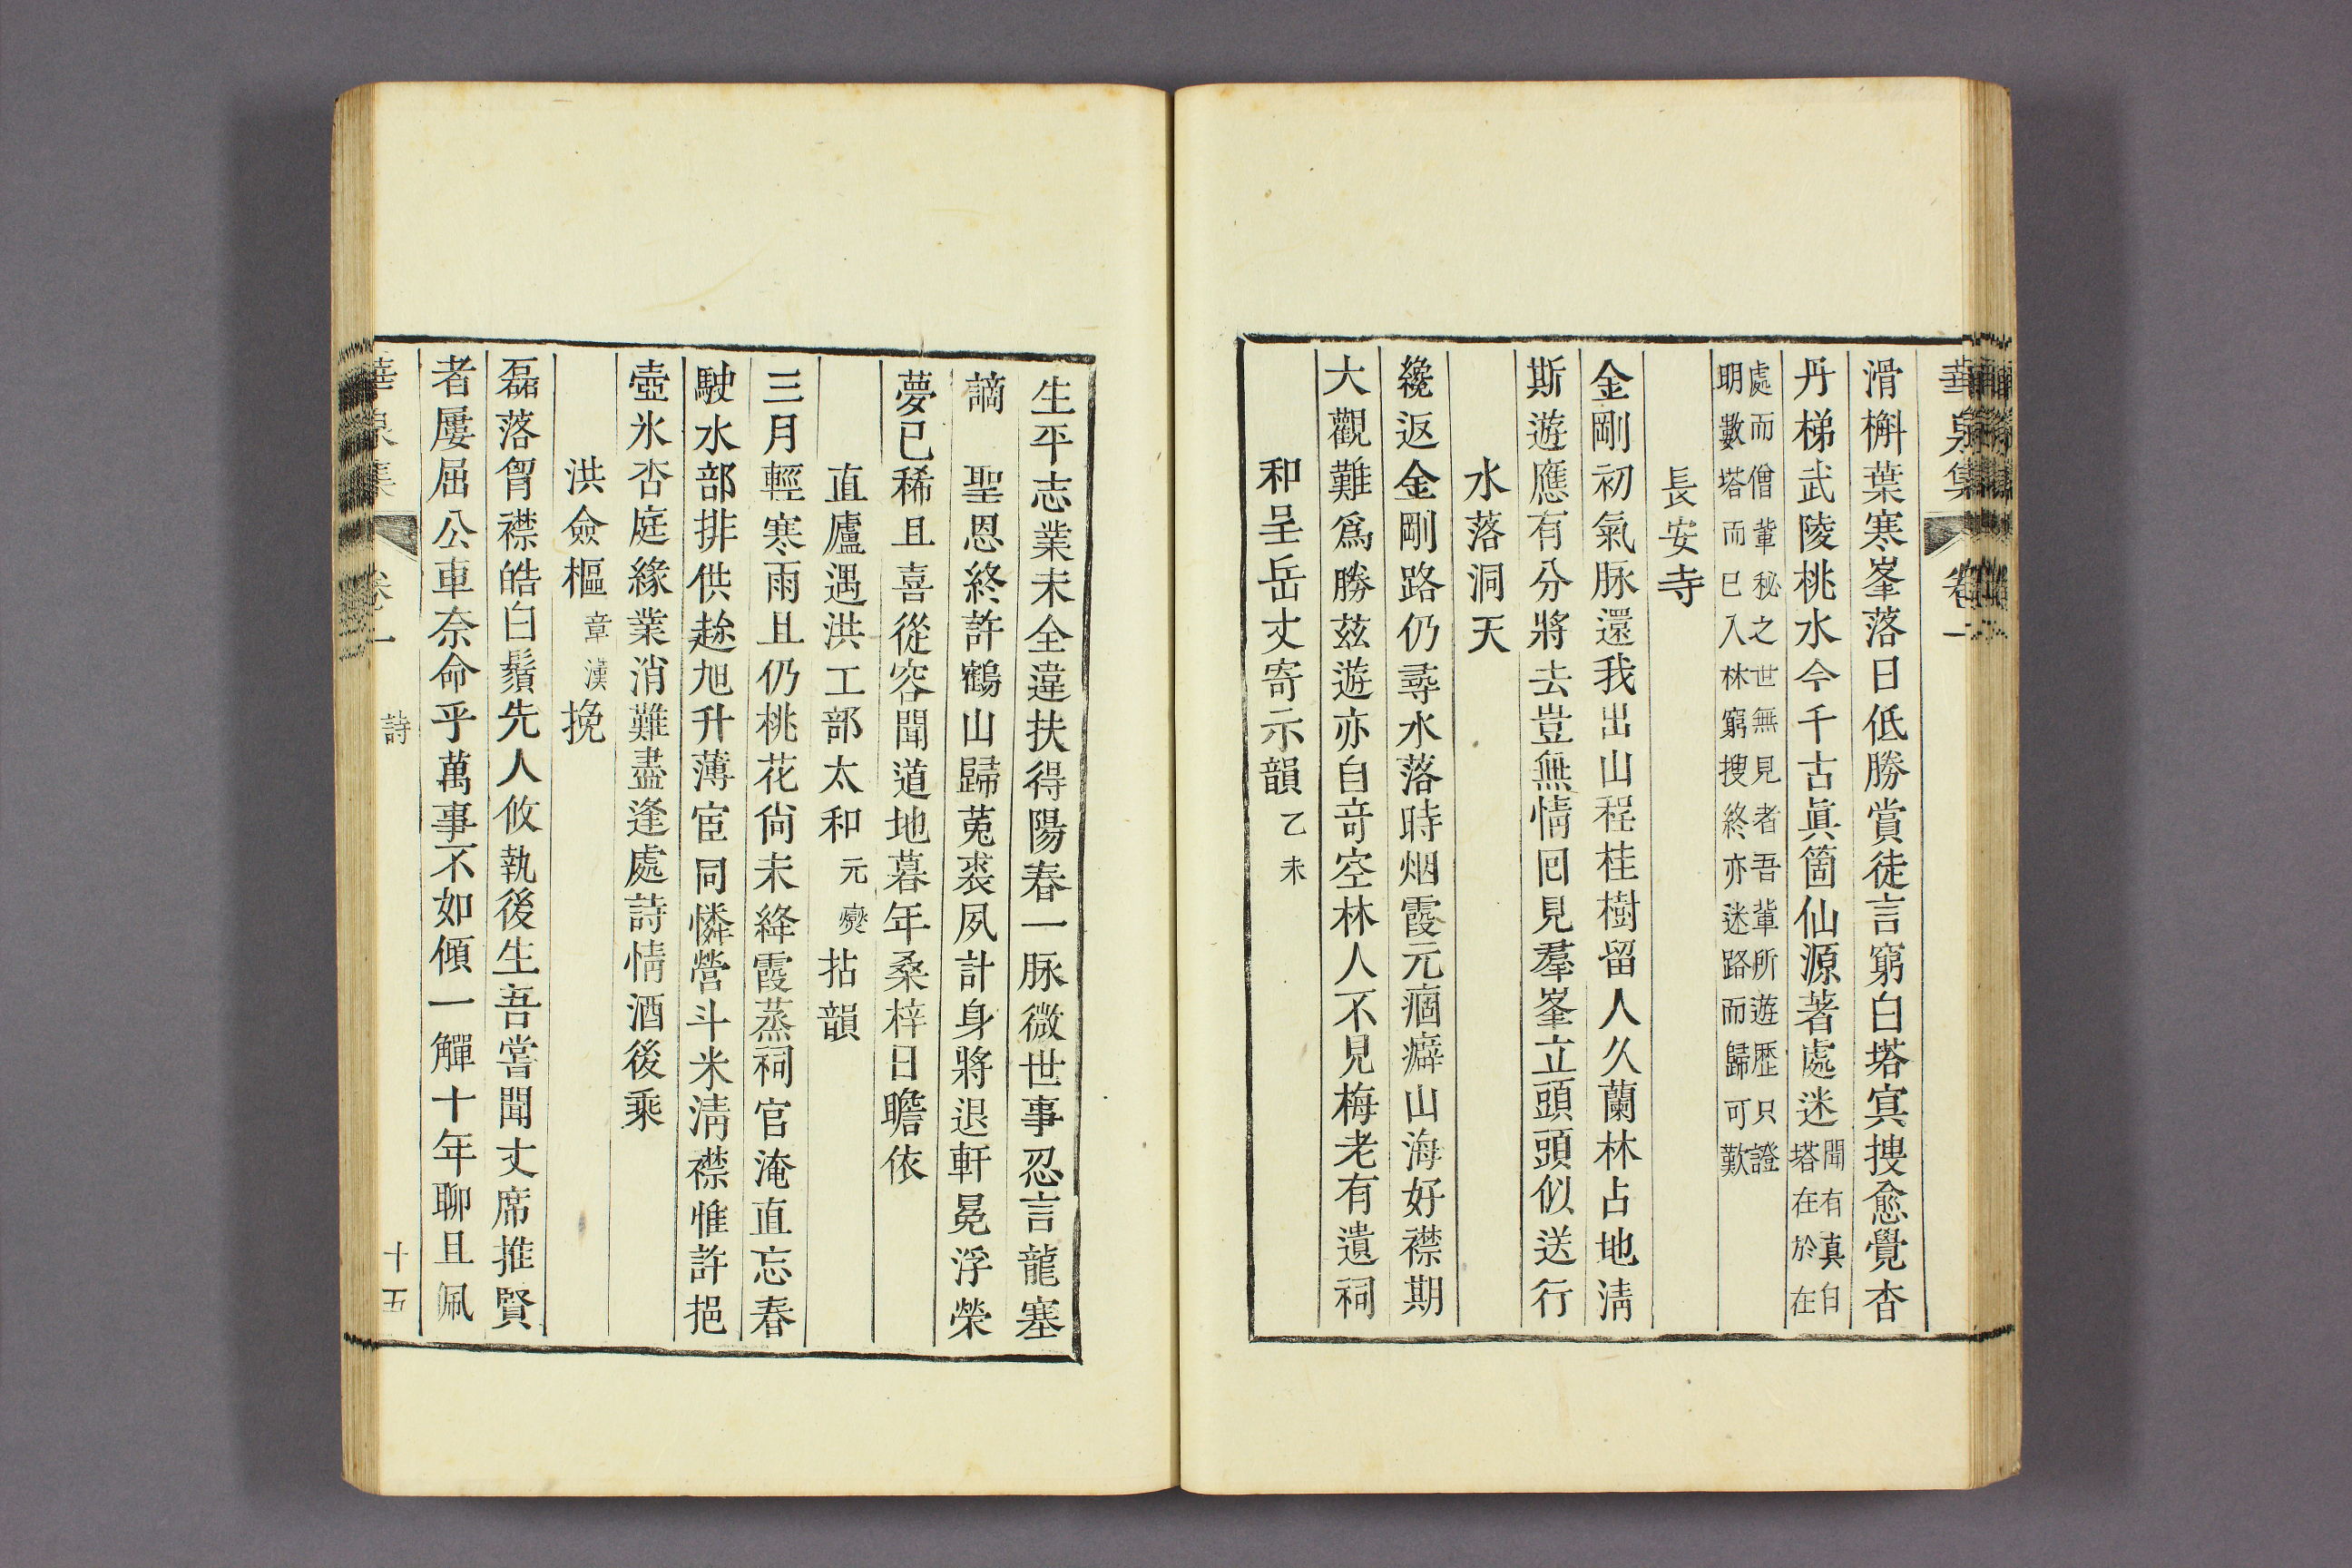 華泉集 卷一
滑槲葉寒峯落日低勝賞徒言窮白塔寘搜愈覺杳
丹梯武陵桃水今千古眞箇仙源著處迷聞有真白塔在於在
處而僧輩秘之世無見者吾輩所遊歷只證
明數塔而已入林窮搜終亦迷路而歸可歎
長安寺
金剛初氣脉還我出山程桂樹留人久蘭林占地淸
斯遊應有分將去豈無情回見羣峯立頭頭似送行
水落洞天
纔返金剛路仍尋水落時烟霞元痼癖山海好襟期
大觀難爲勝茲遊亦自奇空林人不見梅老有遺祠
和呈岳丈寄示韻乙未
生平志業未全違扶得陽春一脉微世事忍言龍塞
謫 聖恩終許鶴山歸菟裘夙計身將退軒冕浮榮
夢已稀且喜從容聞道地暮年桑梓日瞻依
直廬遇洪工部太和元燮拈韻
三月輕寒雨且仍桃花尙未絳霞蒸祠官淹直忘春
駛水部排供趁旭升薄宦同憐營斗米淸襟惟許挹
壺氷杏庭緣業消難盡逢處詩情酒後乘
洪僉樞章漢挽
磊落胷襟皓白鬚先人攸執後生吾嘗聞丈席推賢
者屢屈公車奈命乎萬事不如傾一觶十年聊且佩
華泉集 卷一 詩 十五